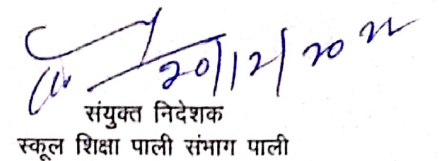 20/12/2022
संयुक्त निदेशक
स्कूल शिक्षा पाली संभाग पाली